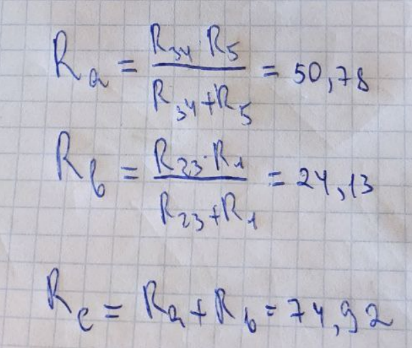 Rₐ = R₃₄·R₅ / R₃₄+R₅ = 50,78
R_b = R₂₃·R₁ / R₂₃+R₁ = 24,13
R_e = Rₐ + R_b = 74,92